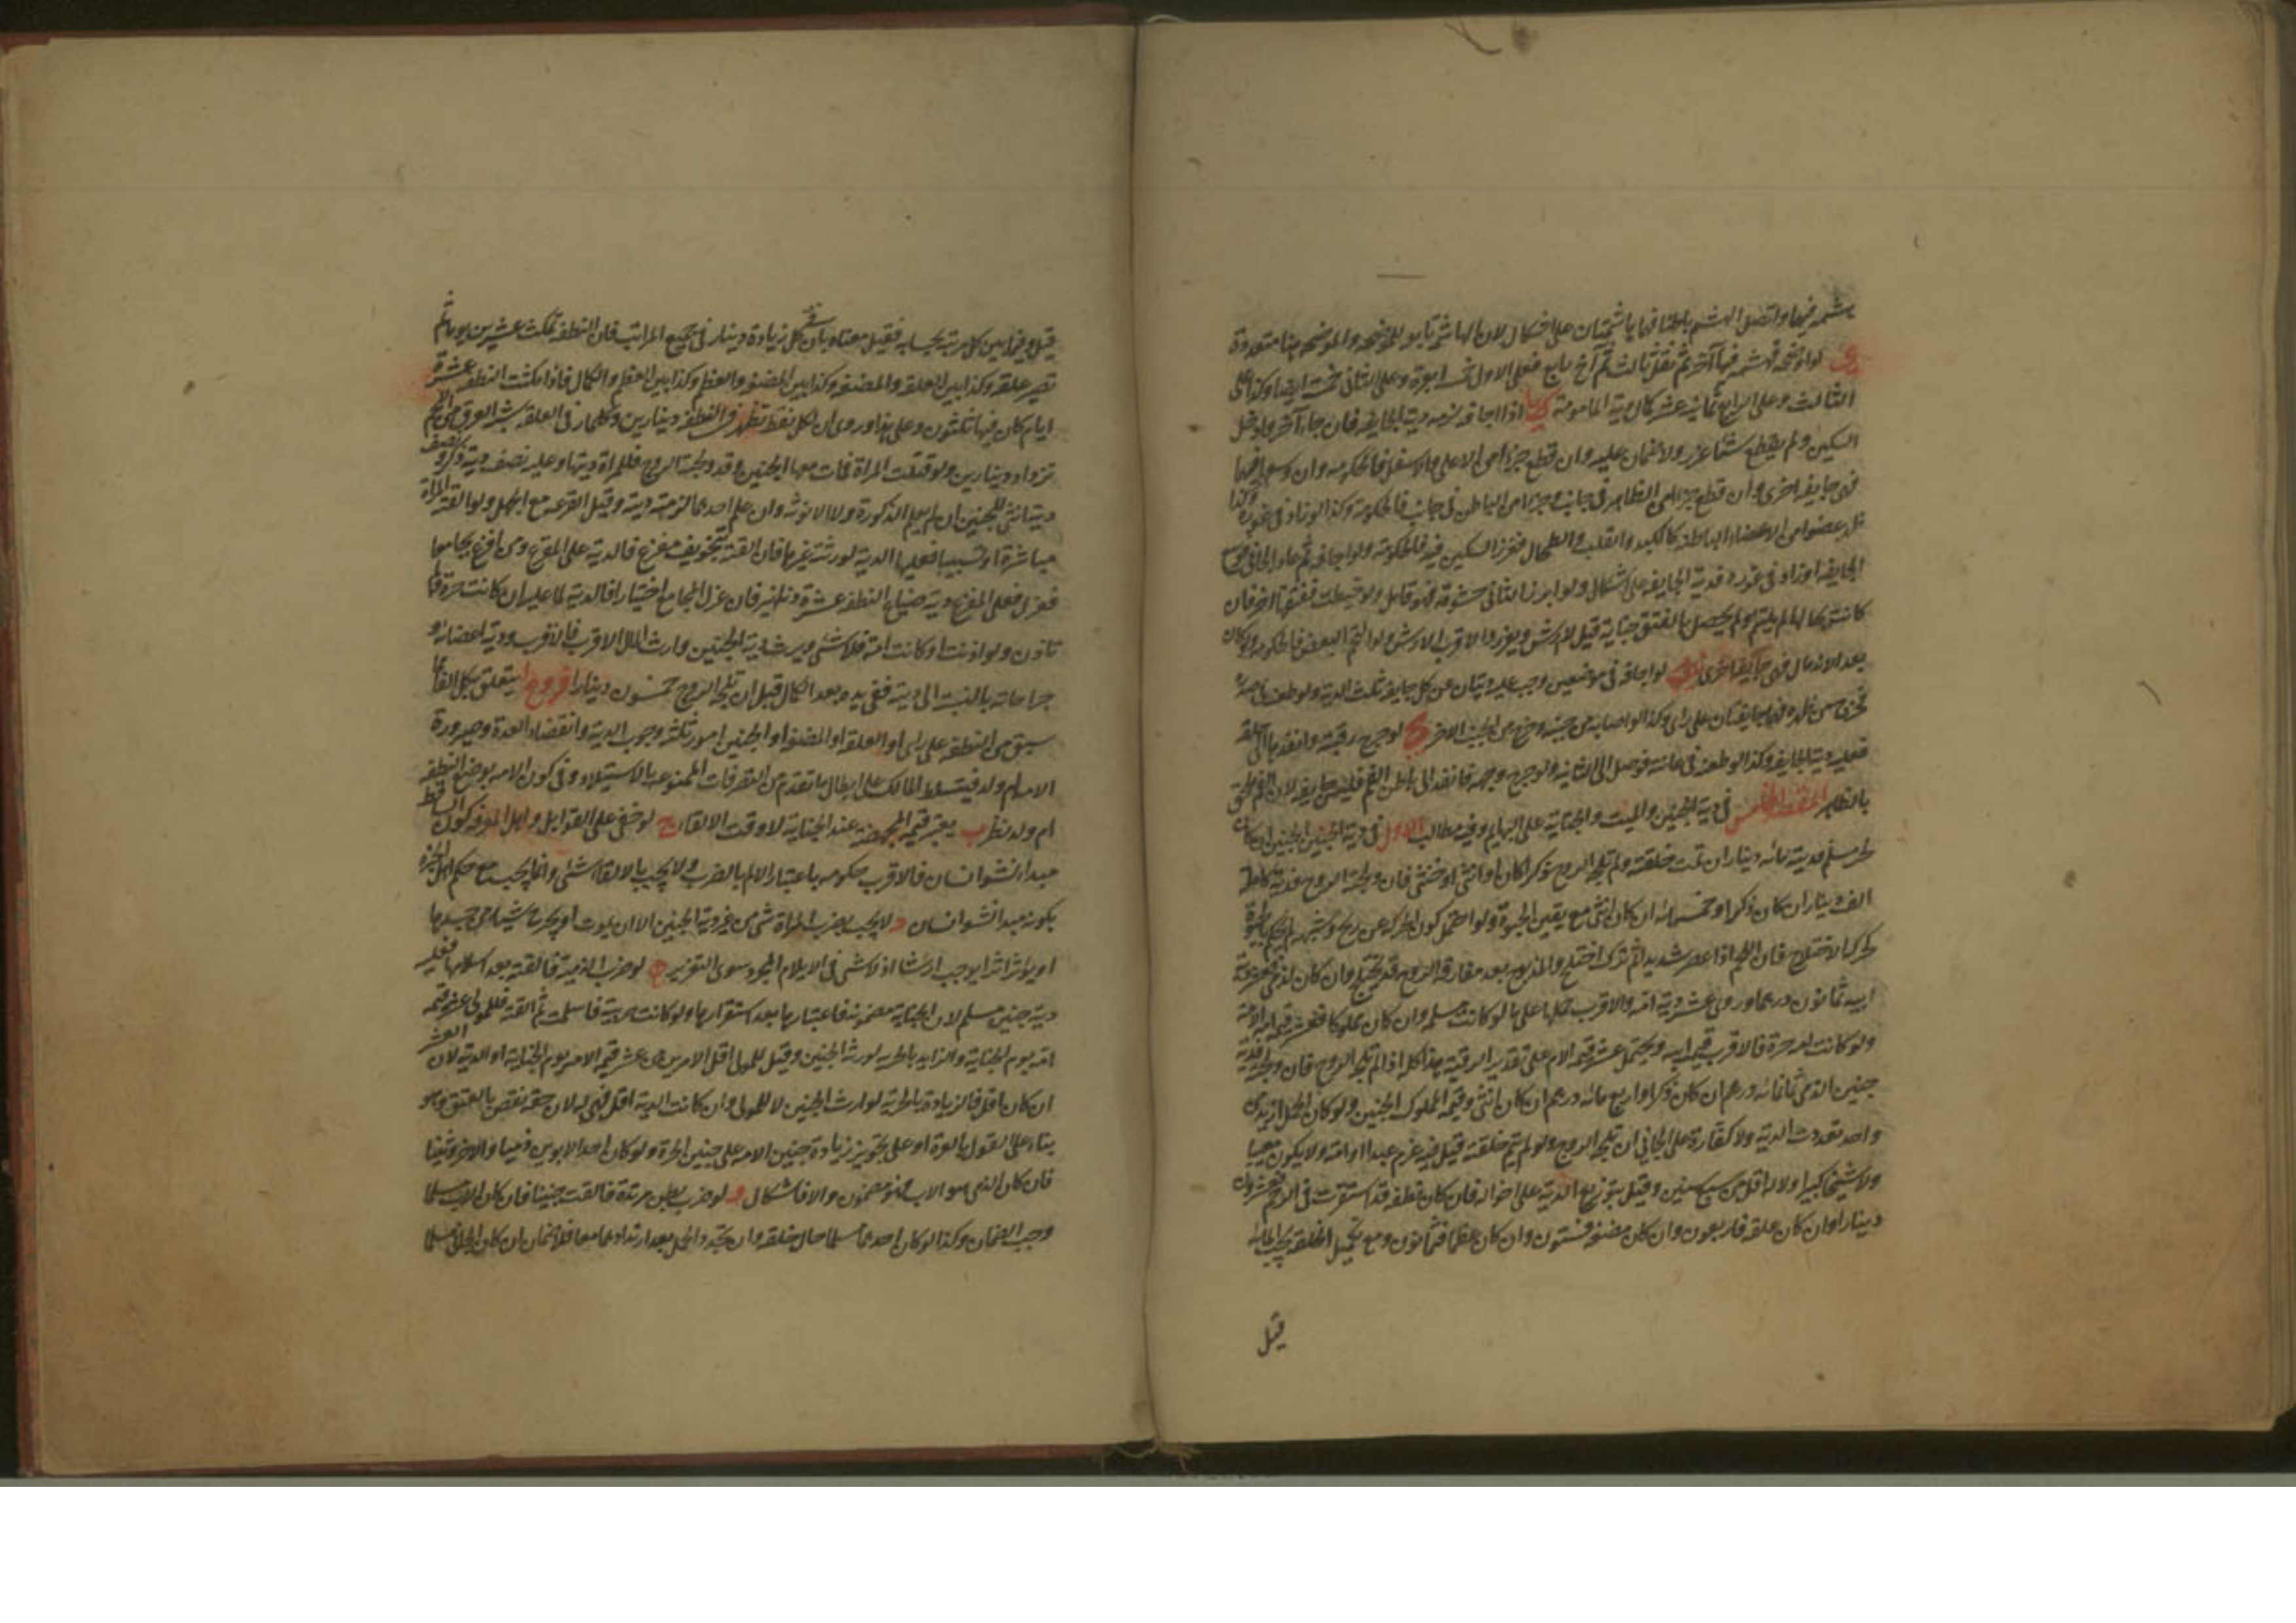 هشمه فيها واتصل الهشم باطنا فهما هاشمتان على اشكال لان الهاشمة تابعة للموضحة والموضحة هنا متعددة
لو اوضحه فهشمه فيها آخر ثم نقل ثالث ثم آم رابع فعلى الاول خمسة ابعرة وعلى الثاني خمسة ايضا وكذا على
الثالث وعلى الرابع ثمانية عشر كمال دية المامومة كا اذا اجافه لزمه دية الجايفة فان جاء آخر وادخل
السكين ولم يقطع شيئا عزر ولا ضمان عليه وان قطع جزءا من الاعلى او الاسفل فالحكومة وان وسعها فيهما
فهى جايفة اخرى وان قطع جزءا من الظاهر في جانب وجزءا من الباطن في جانب فالحكومة وكذا لو زاد في غوره وكذا
لو عضوا من الاعضاء الباطنة كالكبد والقلب والطحال فغرز السكين فيه فالحكومة ولو اجافه ثم عاد الجاني فوسع
الجايفة او زاد في غوره فدية الجايفة على اشكال ولو ابرز الثاني حشوته فهو قاتل ولو خيطت ففتقها آخر فان
كانت بحالها لم يلتئم ولم يحصل بالفتق جناية قيل لا ارش ويعزر والاقرب الارش ولو التحم البعض فالحكومة ولو كان
بعد الاندمال فهى جايفة اخرى لو اجافه في موضعين وجب عليه ديتان عن كل جايفة ثلث الدية ولو طعنه في صدره
فخرج من ظهره فهما جايفتان على راى وكذا لو اصابه من جنبه وخرج من الجنب الاخر كج لو جرح رقبته وانفذها الى حلقه
فعليه دية الجايفة وكذا لو طعنه في عانته فوصل الى المثانة ولو جرح وجهه فانفذ الى باطن الفم فليس جايفة لان الفم ملحق
بالظاهر المقصد الخامس في دية الجنين والميت والجناية على البهايم وفيه مطالب الاول في دية الجنين الجنين ان كان
لحر مسلم فديته مائة دينار ان تمت خلقته ولم تلجه الروح ذكرا كان او انثى او خنثى فان ولجته الروح فدية كاملة
الف دينار ان كان ذكرا وخمسمائة ان كان انثى مع يقين الحيوة ولو احتمل كون الحركة عن ريح وشبهه لم يحكم بالحيوة
كحركة الاختلاج فان اللحم اذا عصر شديدا ثم ترك اختلج والمذبوح بعد مفارقة الروح قد يختلج وان كان لذمى فعشر دية
ابيه ثمانون درهما وروى عشر دية امه والاقرب حملها على ما لو كانت مسلمة وان كان مملوكا فعشر قيمة امه الامة
ولو كانت امه حرة فالاقرب قيمة ابيه ويحتمل عشر قيمة الام على تقدير الرقية هذا كله اذا لم تلجه الروح فان ولجته فدية
جنين الذمى ثمانمائة درهم ان كان ذكرا واربع مائة درهم ان كان انثى وقيمة المملوك الجنين ولو كان الحمل ازيد من
واحد تعددت الدية ولا كفارة على الجاني ان تلجه الروح ولو لم يتم خلقته قيل فيه غرم عبدا او امة ولا يكون معيبا
ولا شيخا كبيرا ولا له اقل من سبع سنين وقيل بتوزيع الدية على احواله فان كان نطفة قد استقرت في الرحم فعشرون
دينارا وان كان علقة فاربعون وان كان مضغة فستون وان كان عظما فثمانون ومع تكميل الخلقة يجب المائة
قيل
قيل وفيما بين كل مرتبة بحسابه فقيل معناه بان في كل زيادة دينار في جميع المراتب فان النطفة تمكث عشرين يوما ثم
تصير علقة وكذا بين العلقة والمضغة وكذا بين المضغة والعظم وكذا بين العظم والكمال فاذا مكثت النطفة عشرة
ايام كان فيها ثلثون وعلى هذا وروى ان لكل نقطة تظهر في النطفة دينارين وكلما زاد في العلقة شبه العرق من اللحم
تزداد دينارين ولو قتلت المراة فمات معها الجنين وقد ولجته الروح فللمراة ديتها وعليه نصف دية ذكر ونصف
دية انثى للجنين ان لم يعلم الذكورة ولا الانوثة وان علم احدهما لزمته دية وقيل القرعة مع الجهل ولو القته المراة
مباشرة او تسبيبا فعليها الدية لورثته غيرها فان القته بتخويف مفزع فالدية على المفزع ومن افزع مجامعا
فعزل فعلى المفزع دية ضياع النطفة عشرة دنانير فان عزل المجامع اختيارا فالدية لها عليه ان كانت حرة ولم
تاذن ولو اذنت او كانت امة فلا شئ ويرث دية الجنين وارث المال الاقرب فالاقرب ودية اعضائه و
جراحاته بالنسبة الى ديته ففى يده بعد الكمال قبل ان تلجه الروح خمسون دينارا فروع ا يتعلق بكل القاء مما
سبق من النطفة على راى او العلقة او المضغة او الجنين امور ثلثة وجوب الدية وانقضاء العدة وصيرورة
الامة ام ولد فيتسلط المالك على ابطال ما تقدم من التصرفات الممنوعة بالاستيلاد وفي كون الامة بوضع النطفة
ام ولد نظر ب يعتبر قيمة المجهضة عند الجناية لا وقت الالقاء ج لو خفى على القوابل واهل المعرفة كون الساقط
مبدا نشو انسان فالاقرب حكومة باعتبار الالم بالضرب ولا يجب بالالقاء شئ وانما يجب مع حكم اهل الخبرة
بكونه مبدا نشو انسان د لا يجب بضرب المراة شئ من غير دية الجنين الا ان يموت او يجرح شيئا من جسدها
او يؤثر اثرا يوجب ارشا اذ لا شئ في الايلام المجرد سوى التعزير ه لو ضرب الذمية فالقته بعد اسلامها فعليه
دية جنين مسلم لان الجناية مضمونة فاعتبارها بعد استقرارها ولو كانت حربية فاسلمت ثم القته فللمولى عشر قيمة
امه يوم الجناية والزايد بالحرية لورثة الجنين وقيل للمولى اقل الامرين من عشر قيمة الامة يوم الجناية او الدية لان العشر
ان كان اقل فالزيادة بالحرية لوارث الجنين لا للمولى وان كانت الدية اقل فهى له لان حقه نقص بالعتق وهو
بناء على القول بالغرة او على تجويز زيادة جنين الامة على جنين الحرة ولو كان احد الابوين ذميا والاخر وثنيا
فان كان الذمى هو الاب فهو مضمون والا فاشكال و لو ضرب بطن مرتدة فالقت جنينا فان كان الاب مسلما
وجب الضمان وكذا لو كان احدهما مسلما حال خلقه وان تجدد الحمل بعد ارتدادهما معا فلا ضمان ان كان الجاني مسلما